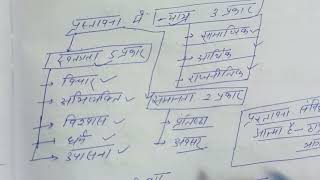 प्रस्तावना में न्याय 3 प्रकार
स्वतंत्रता 5 प्रकार
→ सामाजिक ✓
→ आर्थिक ✓
→ राजनीतिक ✓
→ विचार ✓
→ अभिव्यक्ति ✓
→ विश्वास ✓
→ धर्म ✓
→ उपासना ✓
समानता 2 प्रकार
→ प्रतिष्ठा
→ अवसर ✓
प्रस्तावना
आत्मा है